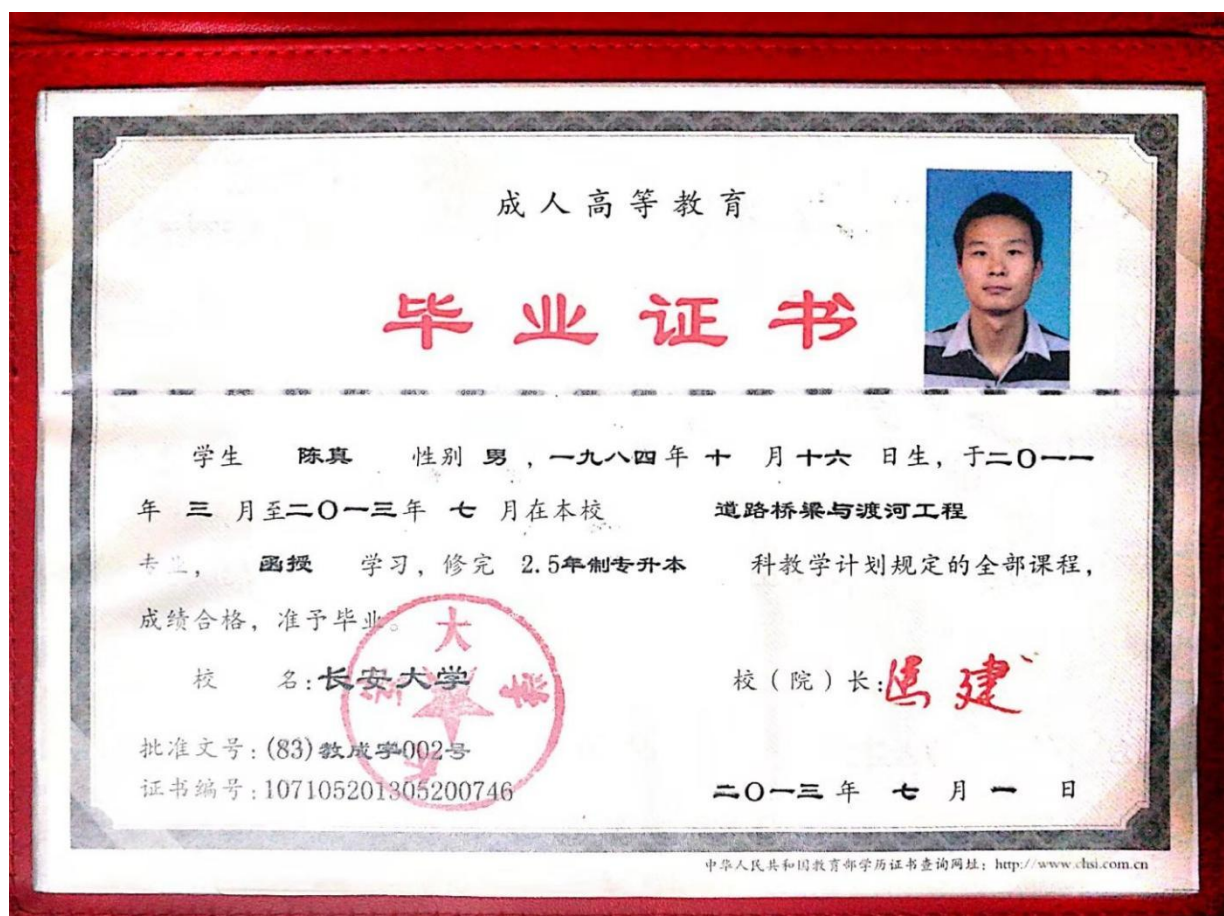 成人高等教育
毕业证书
学生 陈真 性别 男 ,一九八四年 十 月十六 日生, 于二〇一一
年 三 月至二〇一三年 七 月在本校 道路桥梁与渡河工程
专业, 函授 学习, 修完 2.5年制专升本 科教学计划规定的全部课程,
成绩合格, 准予毕业。
校 名:长安大学
校(院)长:
批准文号:(83)教成字002号
证书编号:107105201305200746
二〇一三年 七 月 一 日
中华人民共和国教育部学历证书查询网址: http://www.chsi.com.cn